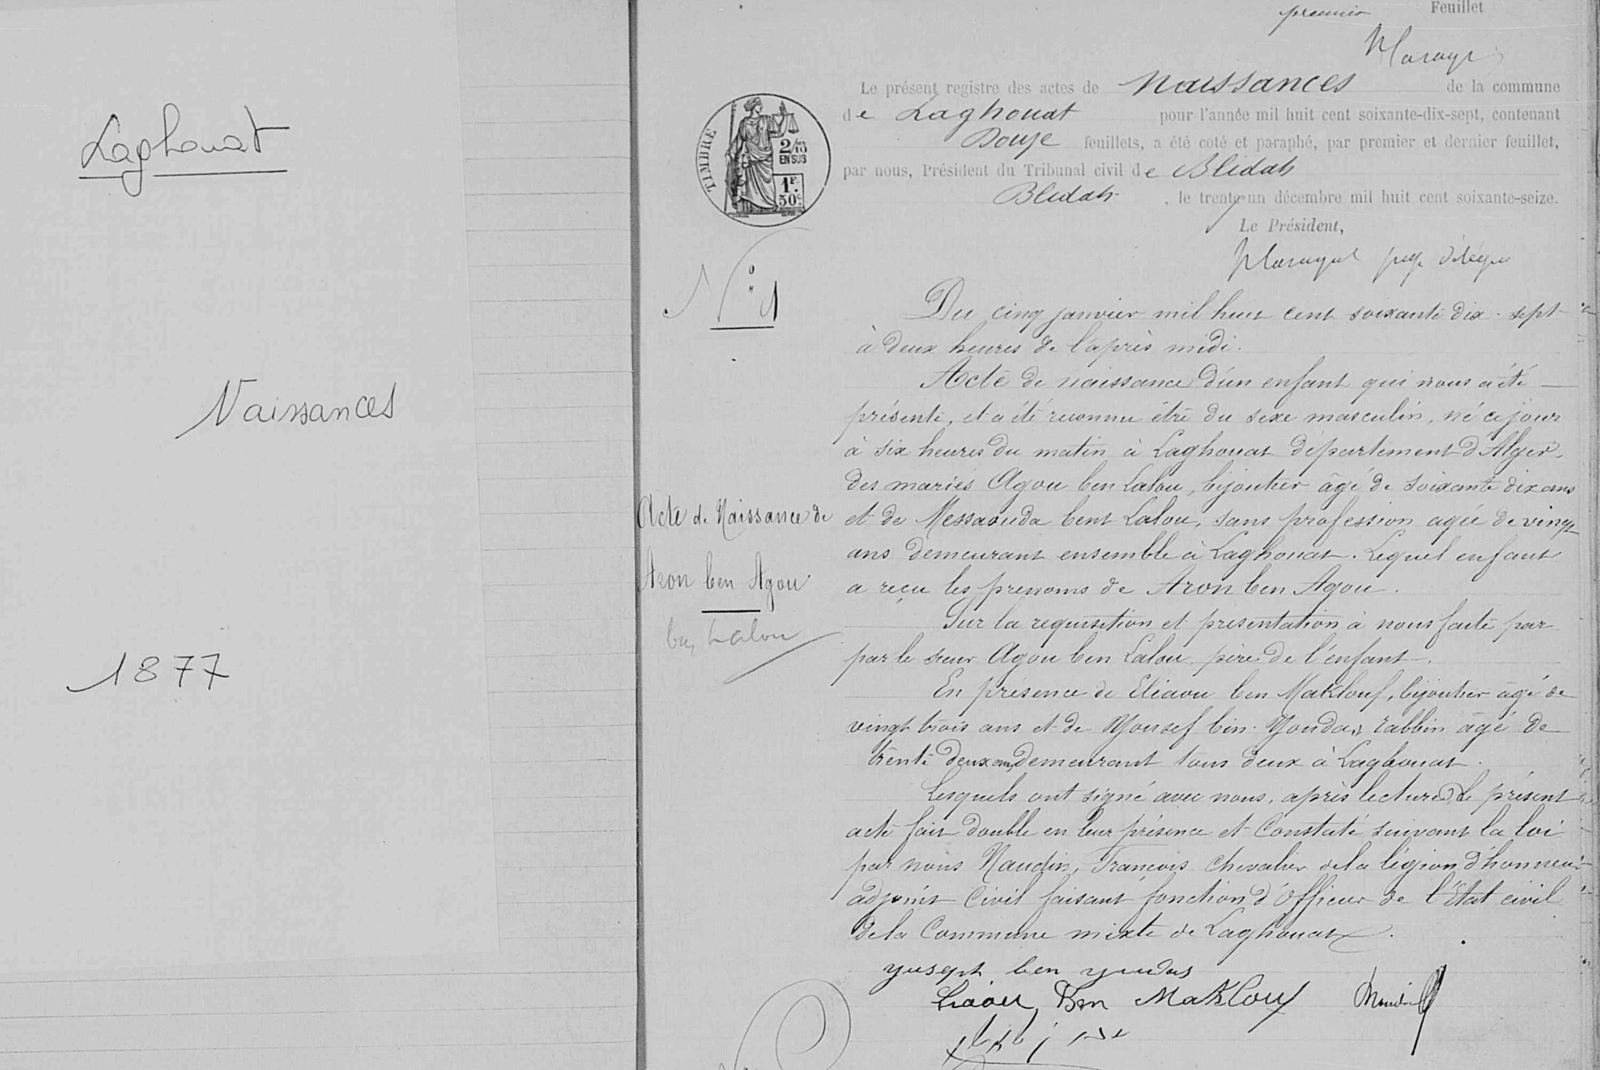 Laghouat
Naissances
1877
premier Feuillet
Le présent registre des actes de Naissances de la commune
de Laghouat pour l'année mil huit cent soixante-dix-sept, contenant
Douze feuillets, a été coté et paraphé, par premier et dernier feuillet,
par nous, Président du Tribunal civil de Blidah
Blidah , le trente-un décembre mil huit cent soixante-seize.
Le Président,
TIMBRE
2/10
EN SUS
1F.
50c
N° 1
Du cinq janvier mil huit cent soixante dix-sept
à deux heures de l'après midi.
Acte de naissance d'un enfant qui nous a été
présenté, et a été reconnu être du sexe masculin, né ce jour
à six heures du matin à Laghouat département d'Alger,
des mariés Agou ben Lalou, bijoutier âgé de soixante dix ans
et de Messaouda bent Lalou, sans profession agée de vingt
ans demeurant ensemble à Laghouat. Lequel enfant
a reçu les prenoms de Aron ben Agou.
Acte de Naissance de
Aron ben Agou
ben Lalou
Sur la requisition et presentation à nous faite par
par le sieur Agou ben Lalou père de l'enfant.
En présence de Eliaou ben Maklouf, bijoutier âgé de
vingt trois ans et de Yousef ben Youda, rabbin âgé de
trente deux ans demeurant tous deux à Laghouat.
Lesquels ont signé avec nous, après lecture, le présent
acte fait double en leur présence et Constaté suivant la loi
par nous Naudin, François chevalier de la légion d'honneur
adjoint Civil faisant fonction d'Officier de l'Etat civil
de la Commune mixte de Laghouat.
yusept ben yudas
Liaou Ben MaKlouf Naudin